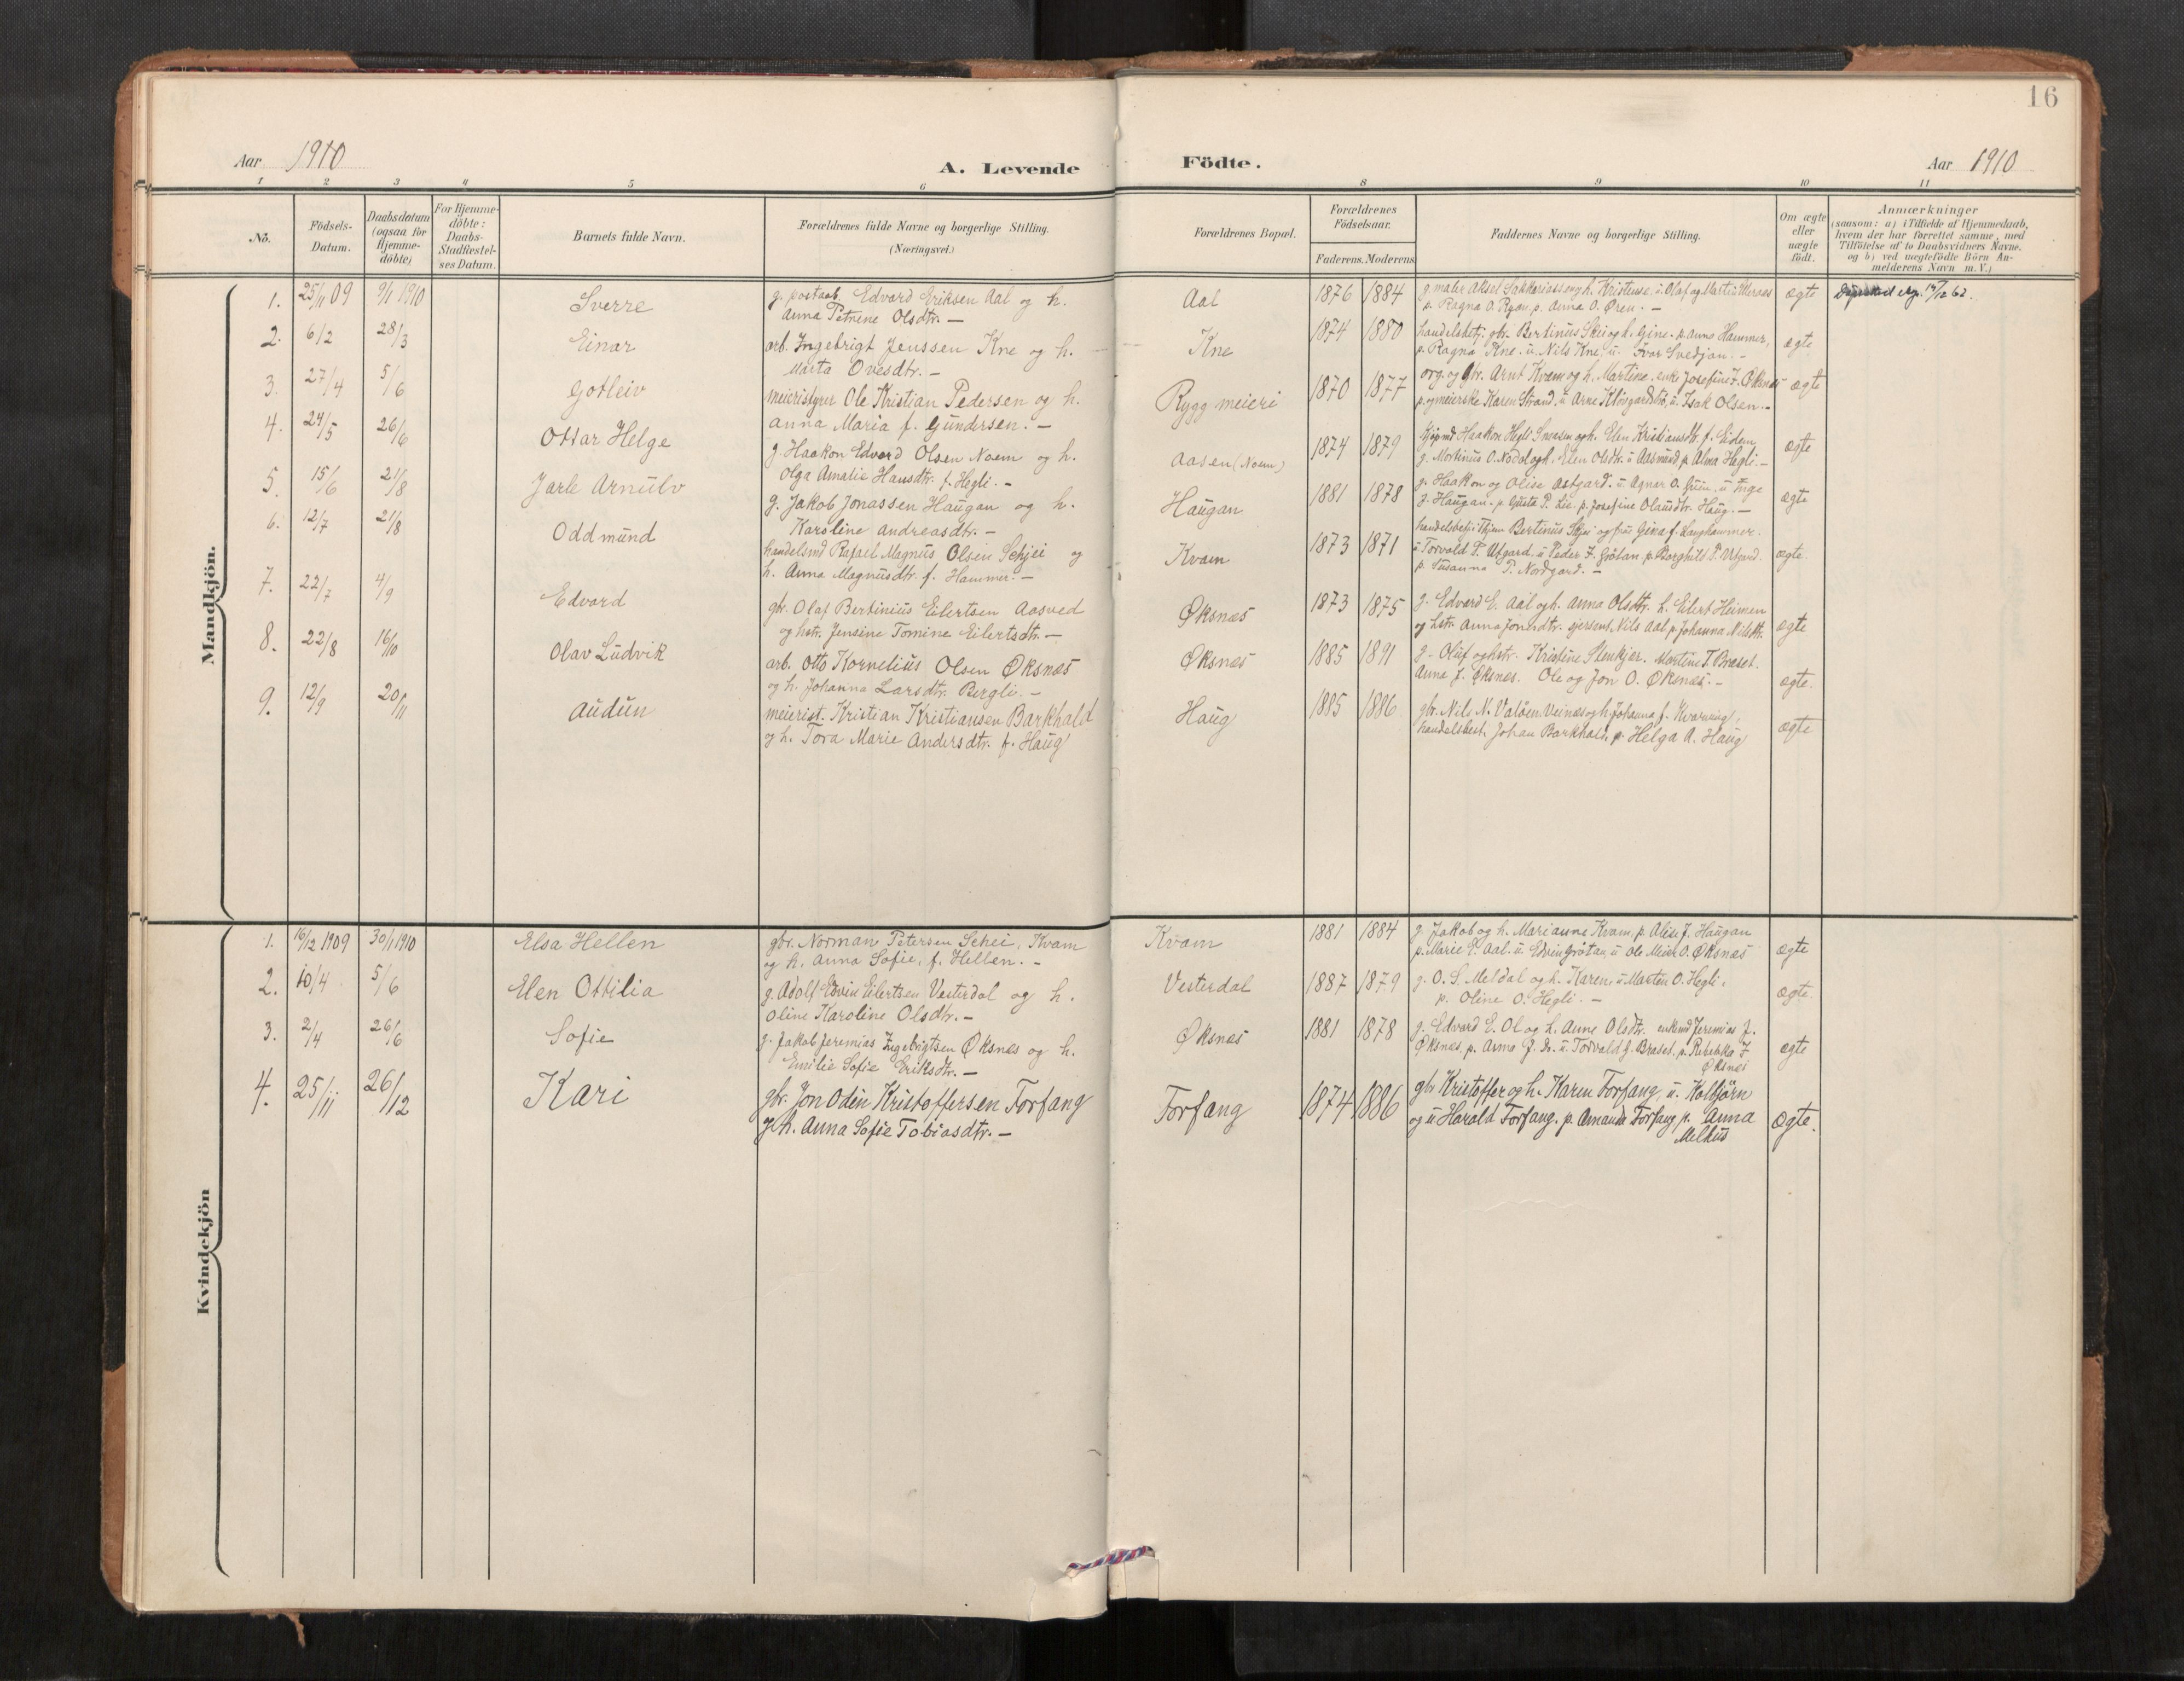 16
Aar 1910
A. Levende
Födte.
Aar 1910
1 2 3 4 5 6 8 9 10 11
No.
Födsels-
Datum.
Daabsdatum
(ogsaa for
Hjemme-
döbte)
For Hjemme-
döbte:
Daabs-
Stadfæstel-
ses Datum.
Barnets fulde Navn.
Forældrenes fulde Navne og borgerlige Stilling.
(Næringsvei.)
Forældrenes Bopæl.
Forældrenes
Födselsaar.
Faderens. Moderens
Faddernes Navne og borgerlige Stilling.
Om ægte
eller
uægte
födt.
Anmærkninger
(saasom: a) i Tilfælde af Hjemmedaab,
hvem der har forrettet samme, med
Tilföielse af to Daabsvidners Navne.
og b) ved uægtefödte Börn An-
melderens Navn m. V.)
Mandkjön.
1. 25/11 09 9/1 1910 Sverre
g. postaab. Edvard Eriksen Aal og h.
Anna Petrine Olsdtr. –
Aal 1876 1884
g. maler Aksel Sakkariassen og h. Kristense. u. Olaf og Martin
p. Ragna O. p. Anna O. Øren. –
ægte
14/12 62.
2. 6/2 28/3 Einar
arb. Ingebrigt Jenssen Kne og h. –
Marta Ovesdtr. –
Kne 1874 1880
handelsbetj. gbr. Bertinus Skei og h. Gine. p. Anna Hammer,
p. Ragna Kne. u. Nils Kne, u. Ivar Svedjan. –
ægte
3. 27/4 5/6 Gotleiv
meieristyrer Ole Kristian Pedersen og h.
Anna Maria f. Gundersen. –
Rygg meieri 1870 1877
org. og gbr. Arnt Kvam og h. Martine. enke Josefine J. Øksnes
p. og meierske Karen Strand, u. Arne u. Isak Olsen. –
ægte
4. 24/5 26/6 Ottar Helge
g. Haakon Edvard Olsen Noem og h.
Olga Amalie Hansdtr. f. Hegli. –
Aasen (Noem) 1874 1879
Kjöpmd Haakon Hegli Snaasen og h. Elen Kristiansdtr. f. Eidem
g. Mortinus O. Nodal og h. Elen Olsdtr. u. Aasmund p. Alma Hegli. –
ægte
5. 15/6 21/8 Jarle Arnulv
g. Jakob Jonassen Haugan og h.
Karoline Andreasdtr. –
Haugan 1881 1878
g. Haakon og Olise Østgard. u. Agnar O. u. Inge
J. Haugan. p. Gusta P. Lie. p. Josefine Olausdtr. Haug. –
ægte
6. 12/7 21/8 Oddmund
handelsmd Rafael Magnus Olsen Schjei og
h. Anna Magnusdtr. f. Hammer. –
Kvam 1873 1871
handelsbetj. i Bertinus Skjei og fru Gina f. Haughammer.
u. Torvald P. Utgard. u. Peder J. Grötan. p. Borghild P. Utgard.
p. Susanna P. Nordgard. –
ægte
7. 22/7 4/9 Edvard
gbr. Olaf Bertinius Eilertsen Aasved
og hstr. Jensine Tomine Eilertsdtr. –
Øksnes 1873 1875
g. Edvard E. Aal og h. Anna Olsdtr. L. Eilert Heimen
og hstr. Anna Jonsdtr. gjersent, Nils Aal p. Johanna Nilsdtr.
ægte
8. 22/8 16/10 Olav Ludvik
arb. Otto Kornelius Olsen Øksnes
og h. Johanna Larsdtr. Bergli. –
Øksnes 1885 1891
g. Oluf og hstr. Kristine Stenkjer. Martine T. Braset.
Anna J. Øksnes. Ole og Jon O. Øksnes. –
ægte.
9. 12/9 20/11 Audun
meierist. Kristian Kristiansen Barkhald
og h. Tora Marie Andersdtr. f. Haug
Haug 1885 1886
gbr. Nils N. Valöen Veines og h. Johanna f. Kvarving,
handelsbest. Johan Barkhald, p. Helga A. Haug
ægte
Kvindekjön
1. 16/12 1909 30/1 1910 Elsa Hellen
gbr. Norman Petersen Schei, Kvam
og h. Anna Sofie, f. Hellen. –
Kvam 1881 1884
g. Jakob og h. Marianne Kvam, p. Alise J. Haugan
p. Marie E. Aal. u. Edvin Grötan, u. Ole Meier O. Øksnes
ægte
2. 10/4 5/6 Elen Ottilia
g. Adolf Edvin Eilertsen Vesterdal og h.
Oline Karoline Olsdtr. –
Vesterdal 1887 1879
g. O. S. Meldal og h. Karen, u. Morten O. Hegli,
p. Oline O. Hegli. –
ægte.
3. 2/4 26/6 Sofie
g. Jakob Jeremias Ingebrigtsen Øksnes og h.
Emilie Sofie Eriksdtr. –
Øksnes 1881 1878
g. Edvard E. Ol og h. Anne Olsdtr. enkemd Jeremias J.
Øksnes, p. Anna J. u. Torvald J. Braset. p. Rebekka J.
Øksnes
ægte
4. 25/11 26/12 Kari
gbr. Jon Odin Kristoffersen Forfang
og h. Anna Sofie Tobiasdtr. –
Forfang 1874 1886
gbr Kristoffer og h. Karen Forfang, u. Kolbjörn
og u Harald Forfang. p. Amanda Forfang p. Anna
Melhus
ægte.